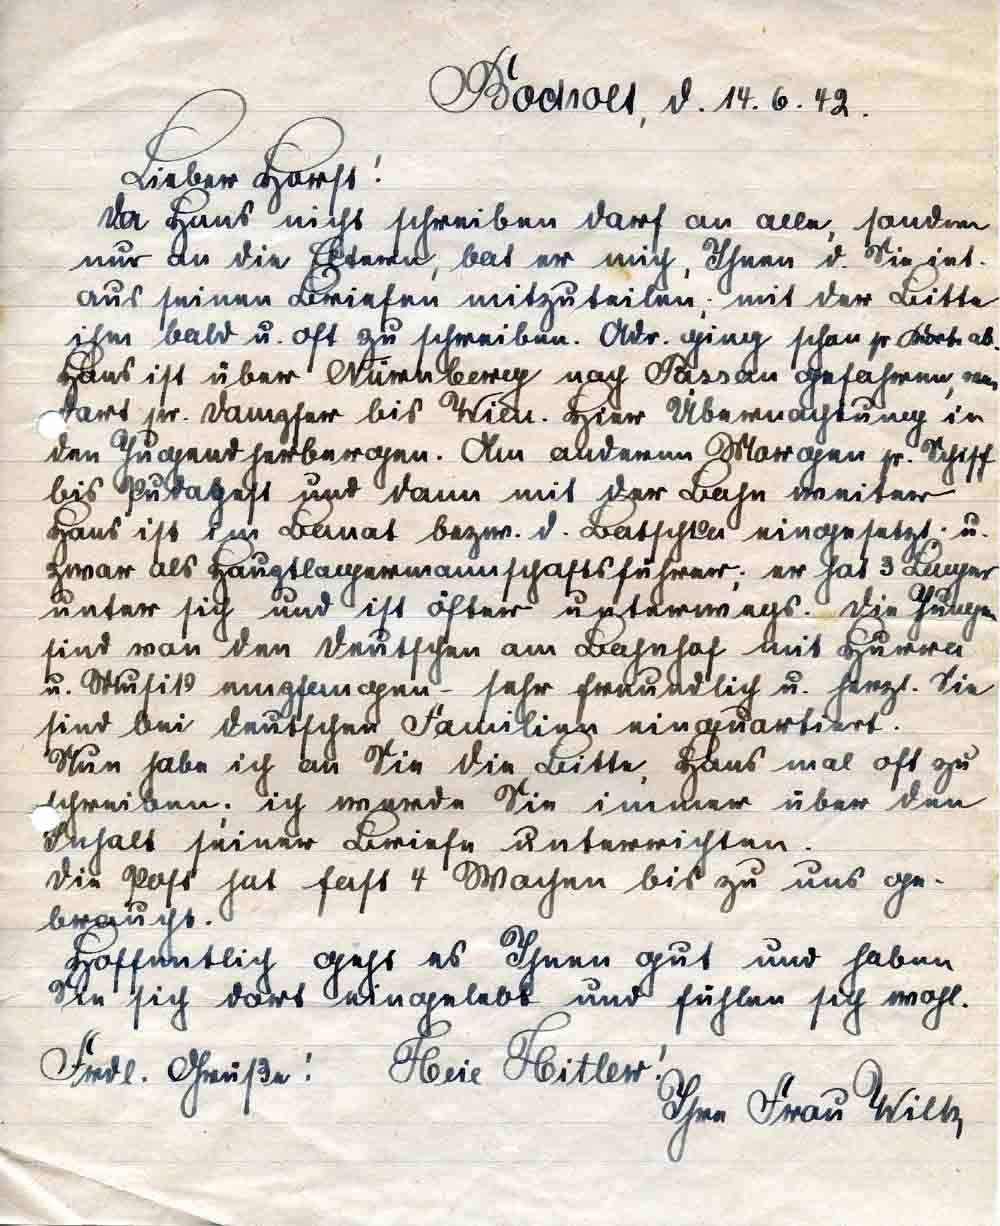 Bocholt, d. 14.6.42.
Lieber Horst!
Da Hans nicht schreiben darf an alle, sondern
nur an die Eltern, bat er mich, Ihnen d.
aus seinen Briefen mitzuteilen, mit der Bitte
ihm bald u. oft zu schreiben. Adr. ging schon pr ab.
Hans ist über Nürnberg nach Passau gefahren, von
dort pr. Dampfer bis Wien. Hier Übernachtung in
den Jugendherbergen. Am anderen Morgen pr. Schiff
bis Budapest und dann mit der Bahn weiter
Hans ist im Banat bezw. d. Batschka eingesetzt u.
zwar als Hauptlagermannschaftsführer; er hat 3 Lager
unter sich und ist öfter unterwegs. Die Jungen
sind von den Deutschen am Bahnhof mit Hurra
u. Musik empfangen - sehr freundlich u. herzl. Sie
sind bei deutschen Familien einquartiert.
Nun habe ich an Sie die Bitte, Hans mal oft zu
schreiben; ich werde Sie immer über den
Inhalt seiner Briefe unterrichten.
Die Post hat fast 4 Wochen bis zu uns ge-
braucht.
Hoffentlich geht es Ihnen gut und haben
Sie sich dort eingelebt und fühlen sich wohl.
Frdl. Grüße! Heil Hitler!
Ihre Frau